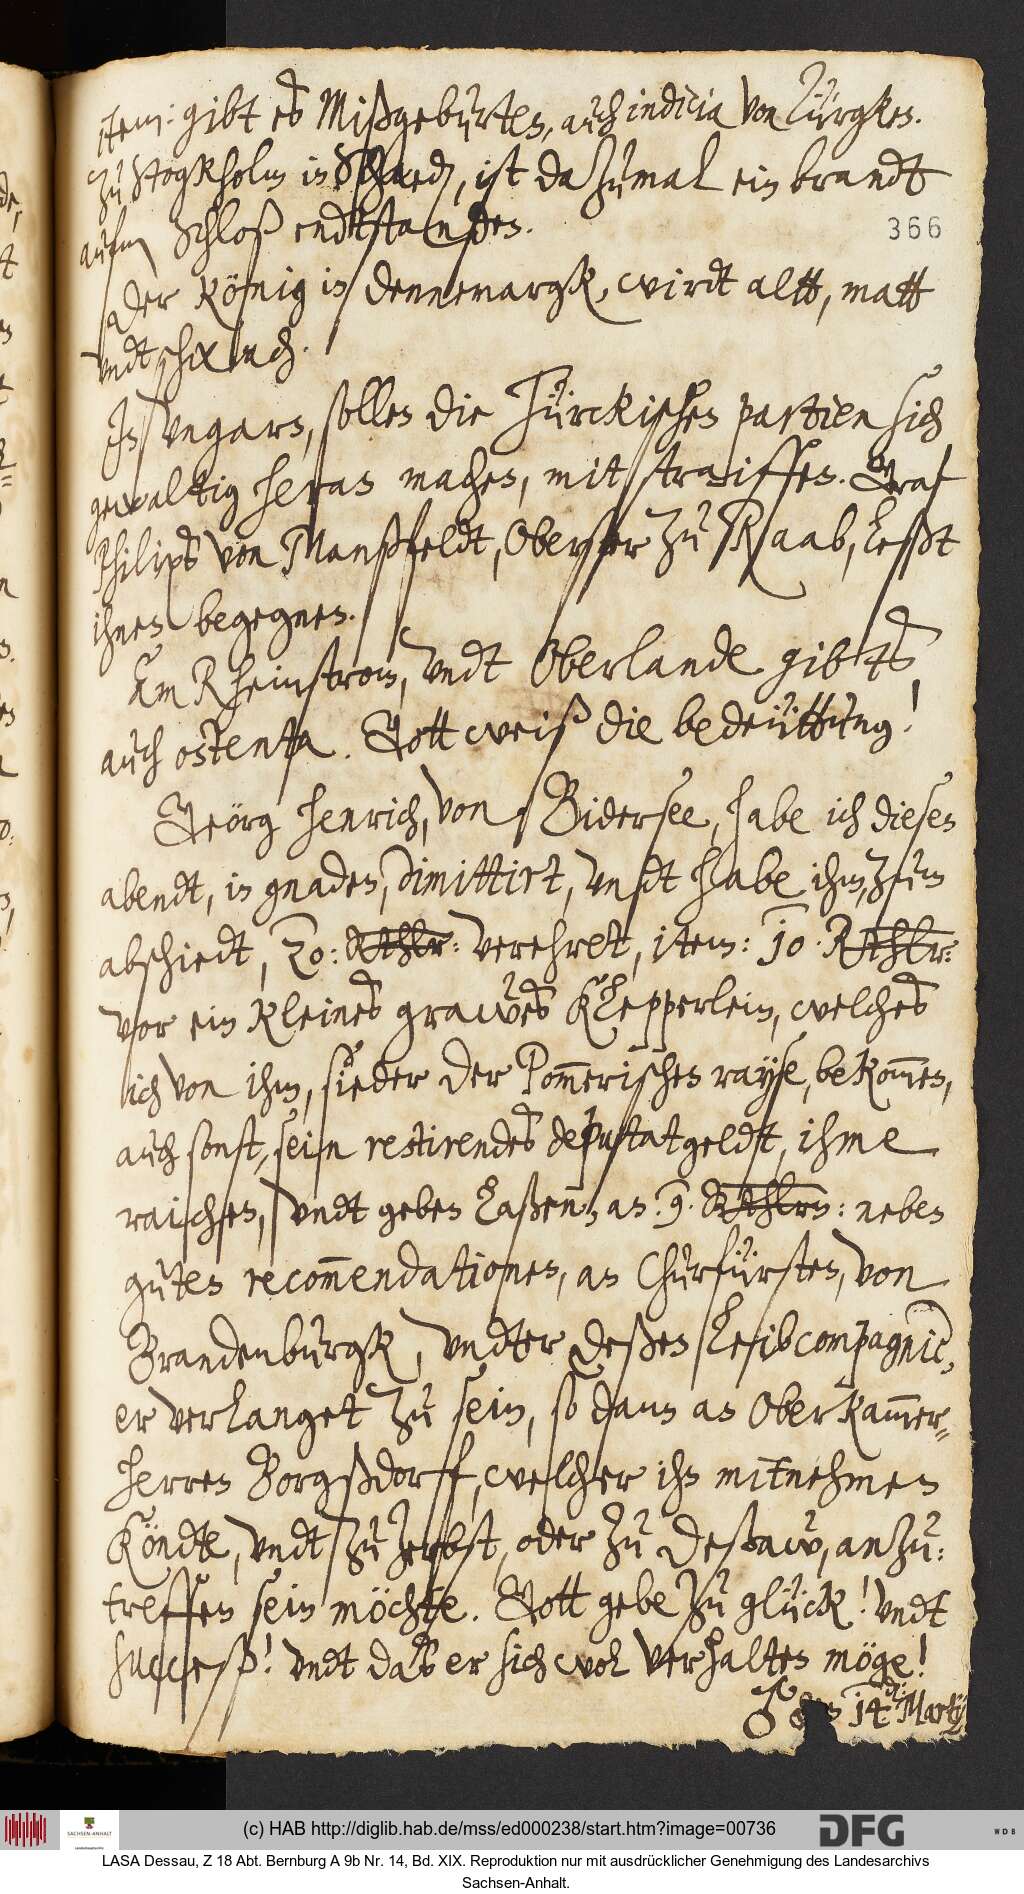 Item: gibt es Mißgeburten, auch indicia von Türgken.
Zu Stogkholm in Schwed[en], ist dazumal ein brandt
366
aufm Schloß endtstanden.
Der König in Dennemargk, wirdt altt, matt
undt schwach.
In Ungarn, sollen die Türckischen partien sich
gewaltig heran machen, mit straiffen. Graf
Philips von Manßfeldt, Oberster zu Raab, leßt
ihnen begegnen.
Am Rheinstrom, undt Oberlande gibts
auch ostenta. Gott weiß die bedeüttung!
Geörg Henrich, von Bidersee, habe ich diesen
abendt, in gnaden, dimittirt, undt habe ihm, zum
abschiedt, 20: Rthlr: verehret, item: 10. Rthlr:
vor ein kleines grawes Klepperlein, welches
ich von ihm, sieder der Pom̅erischen rayse, bekom̅en,
auch sonst, sein restirendes deputatgeldt, ihme
raichen, undt geben laßen, an .9. Rthlrn: neben
guten recom̅endationen, an Churfürsten, von
Brandenburgk, undter deßen Leibcompagnie,
er verlanget zu sein, so dann an Oberkam̅er-
herren Borgßdorff, welcher ihn mitnehmen
köndte, undt zu Zerbst, oder zu Deßaw, anzu:
treffen sein möchte. Gott gebe zu glück! undt
succeß! undt daß er sich wol verhalten möge!
♂ den 14. Martij
(c) HAB http://diglib.hab.de/mss/ed000238/start.htm?image=00736
SACHSEN-ANHALT
DFG
WDB
LASA Dessau, Z 18 Abt. Bernburg A 9b Nr. 14, Bd. XIX. Reproduktion nur mit ausdrücklicher Genehmigung des Landesarchivs
Sachsen-Anhalt.